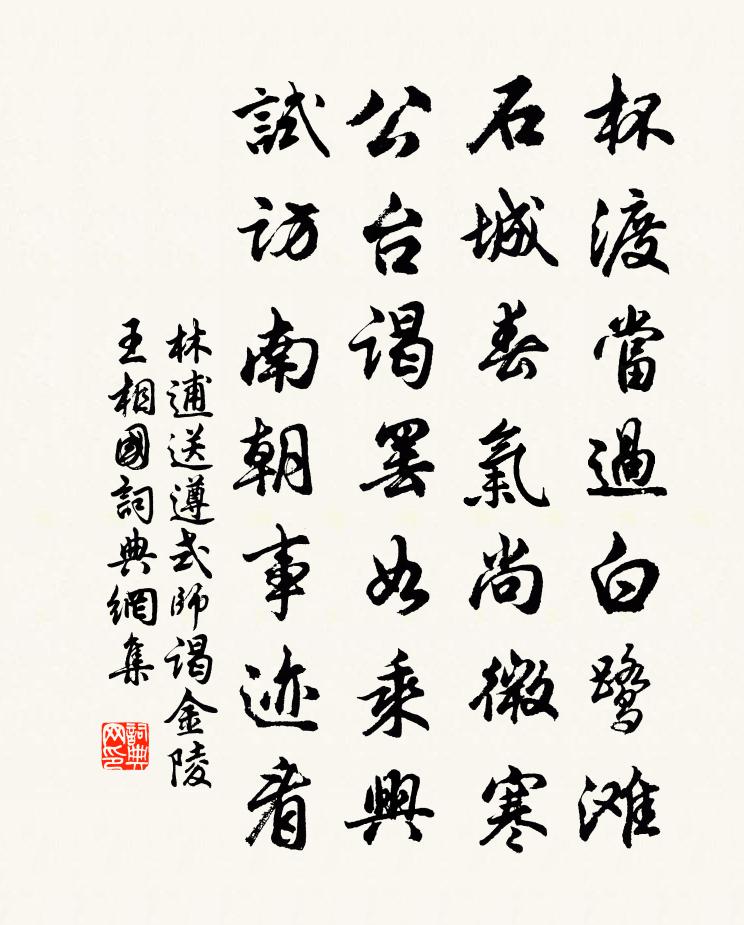 杯渡當過白鷺滩
石城春氣尚微寒
公台謁罢如乘興
試訪南朝事迹看
林逋送遵式師謁金陵
王相國詞典網集
詞典网印